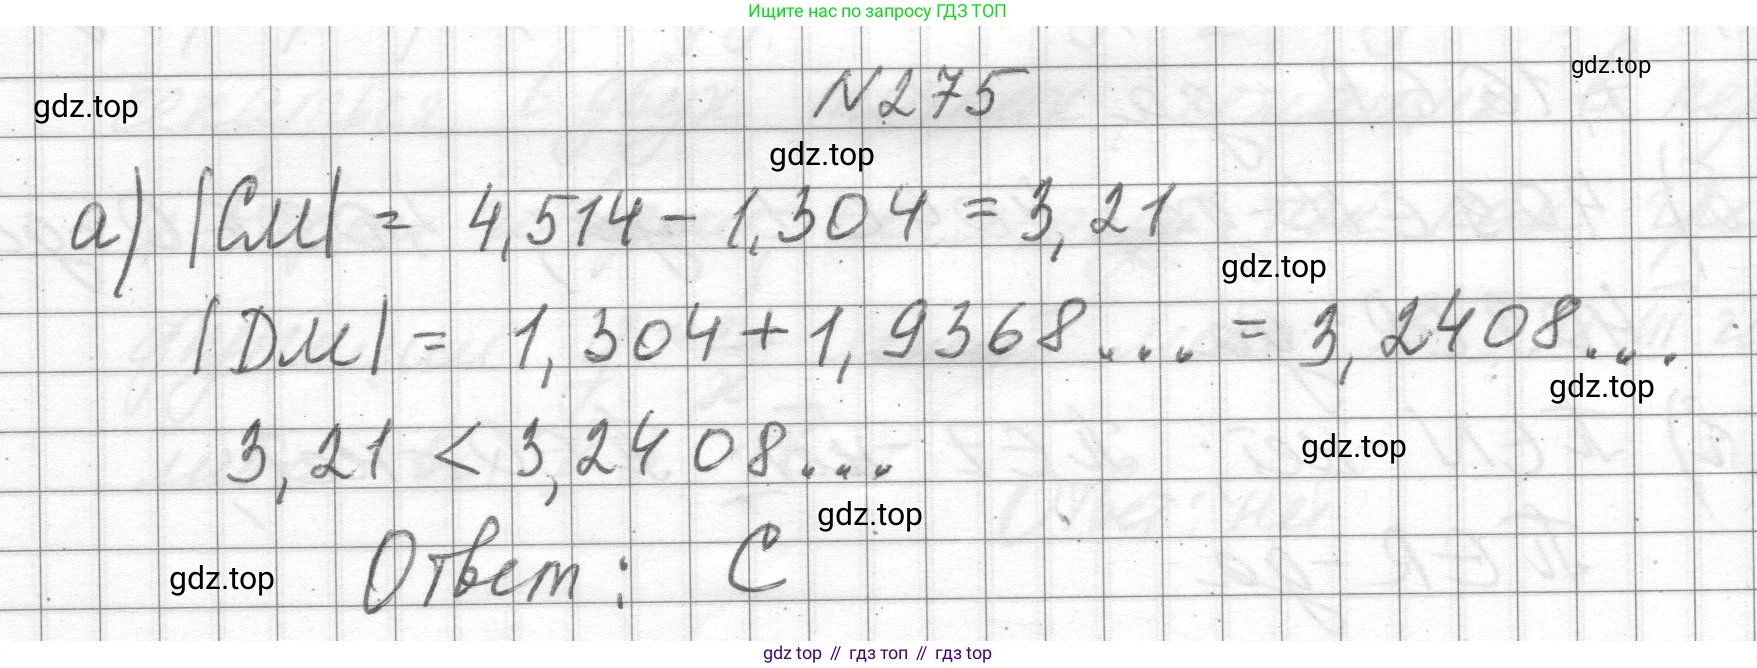 Ищите нас по запросу ГДЗ ТОП
gdz.top
gdz.top
N275
gdz.top
а) |CM| = 4,514 - 1,304 = 3,21
gdz.top
|DM| = 1,304 + 1,9368... = 3,2408...
gdz.top
3,21 < 3,2408...
gdz.top
gdz.top
Ответ: C
gdz.top
gdz top // гдз топ // гдз top